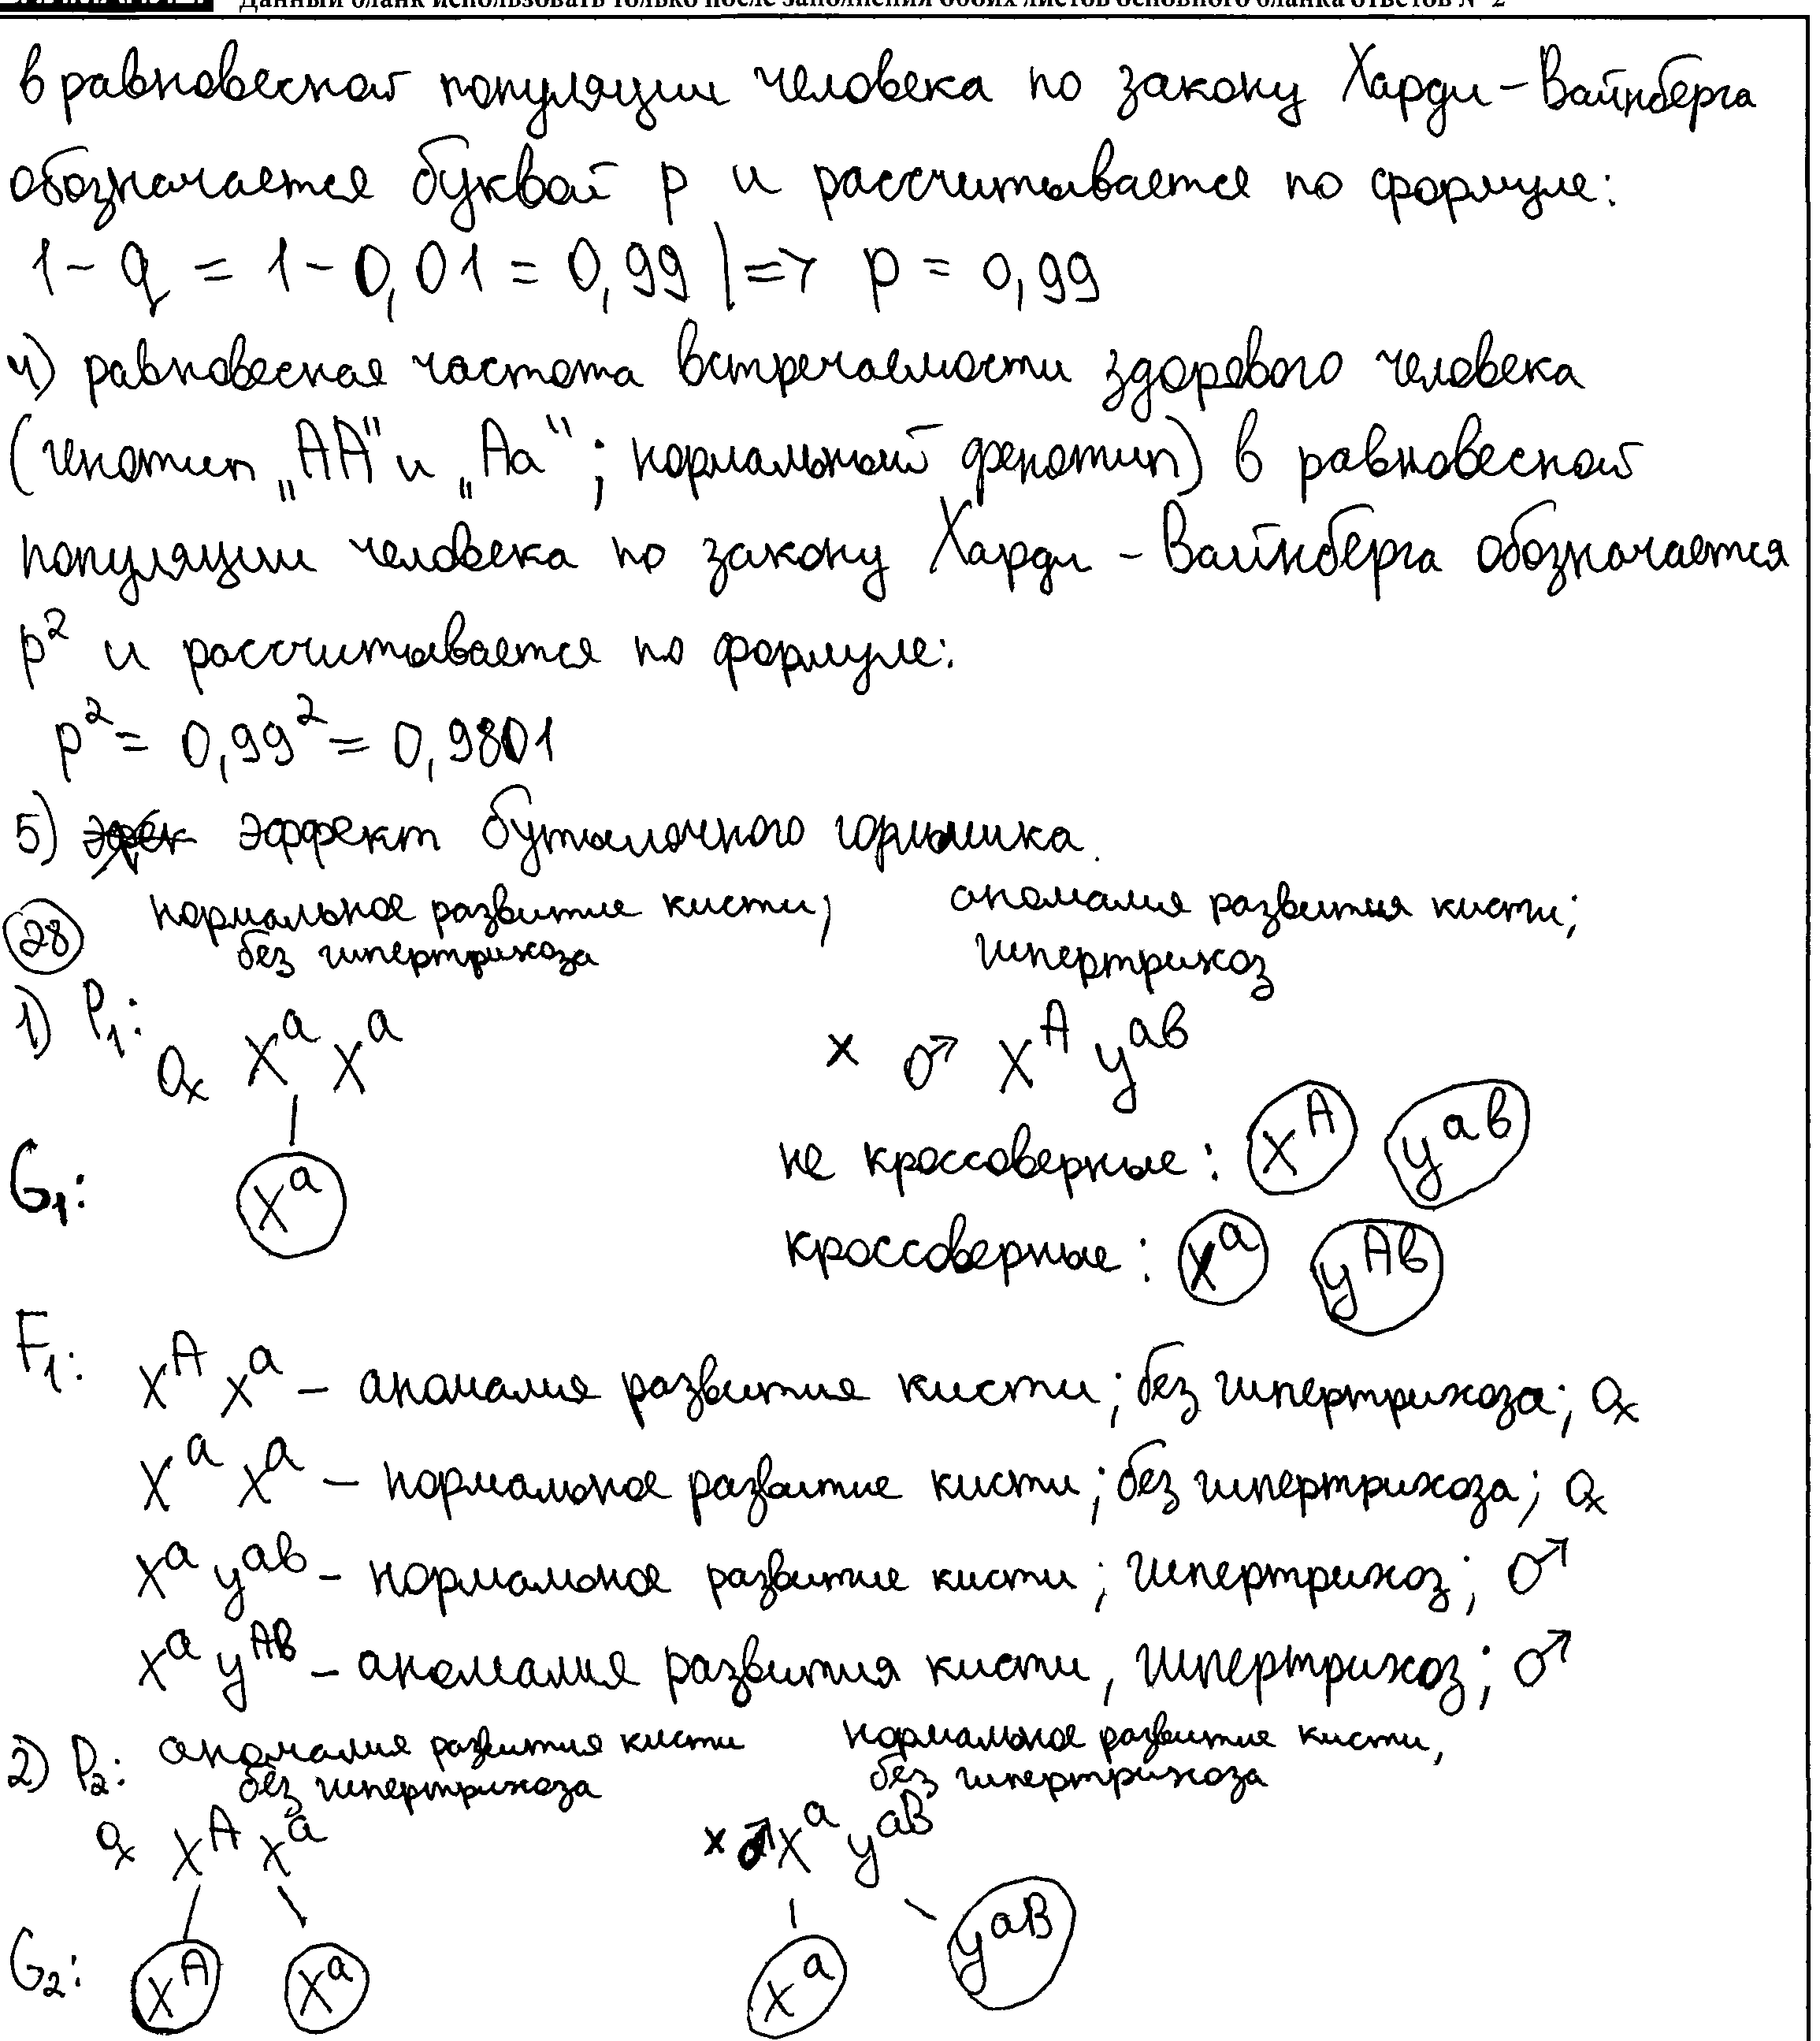 Данный бланк использовать только после заполнения обоих листов основного бланка ответов № 2
в равновесной популяции человека по закону Харди - Вайнберга
обозначается буквой p и рассчитывается по формуле:
1 - q = 1 - 0,01 = 0,99 |=> p = 0,99
4) равновесная частота встречаемости здорового человека
(генотип „AA" и „Aa"; нормальный фенотип) в равновесной
популяции человека по закону Харди - Вайнберга обозначается
p² и рассчитывается по формуле:
p² = 0,99² = 0,9801
5) эффект бутылочного горлышка.
28 нормальное развитие кисти; аномалия развития кисти;
без гипертрихоза гипертрихоз
1) P₁: ♀ Xᵃ Xᵃ x ♂ Xᴬ yᵃᵇ
не кроссоверные: Xᴬ yᵃᵇ
G₁: Xᵃ
кроссоверные: Xᵃ yᴬᵇ
F₁: Xᴬ Xᵃ – аномалия развития кисти; без гипертрихоза; ♀
Xᵃ Xᵃ – нормальное развитие кисти; без гипертрихоза; ♀
Xᵃ yᵃᵇ – нормальное развитие кисти; гипертрихоз; ♂
Xᵃ yᴬᵇ – аномалия развития кисти, гипертрихоз; ♂
2) P₂: аномалия развития кисти нормальное развитие кисти,
без гипертрихоза без гипертрихоза
♀ Xᴬ Xᵃ x ♂ Xᵃ yᵃᴮ
G₂: Xᴬ Xᵃ Xᵃ yᵃᴮ